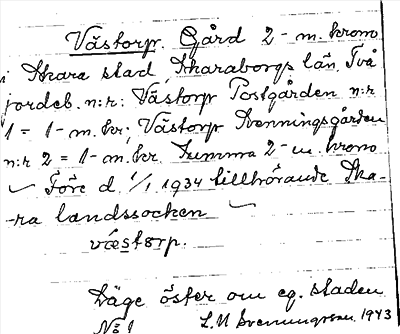 Västorp. Gård 2-m. krono
i Skara stad, Skaraborgs län. Två
jordeb. n:r: Västorp Postgården n:r
1 = 1-m. kr; Västorp Svenningsgården
n:r 2 = 1-m. kr. Summa 2-m. krono
Före d. 1/1 1934 tillhörande Ska-
-ra landssocken
västorp.
Läge öster om eg. staden
No 1 L. M. Svenningsson 1943